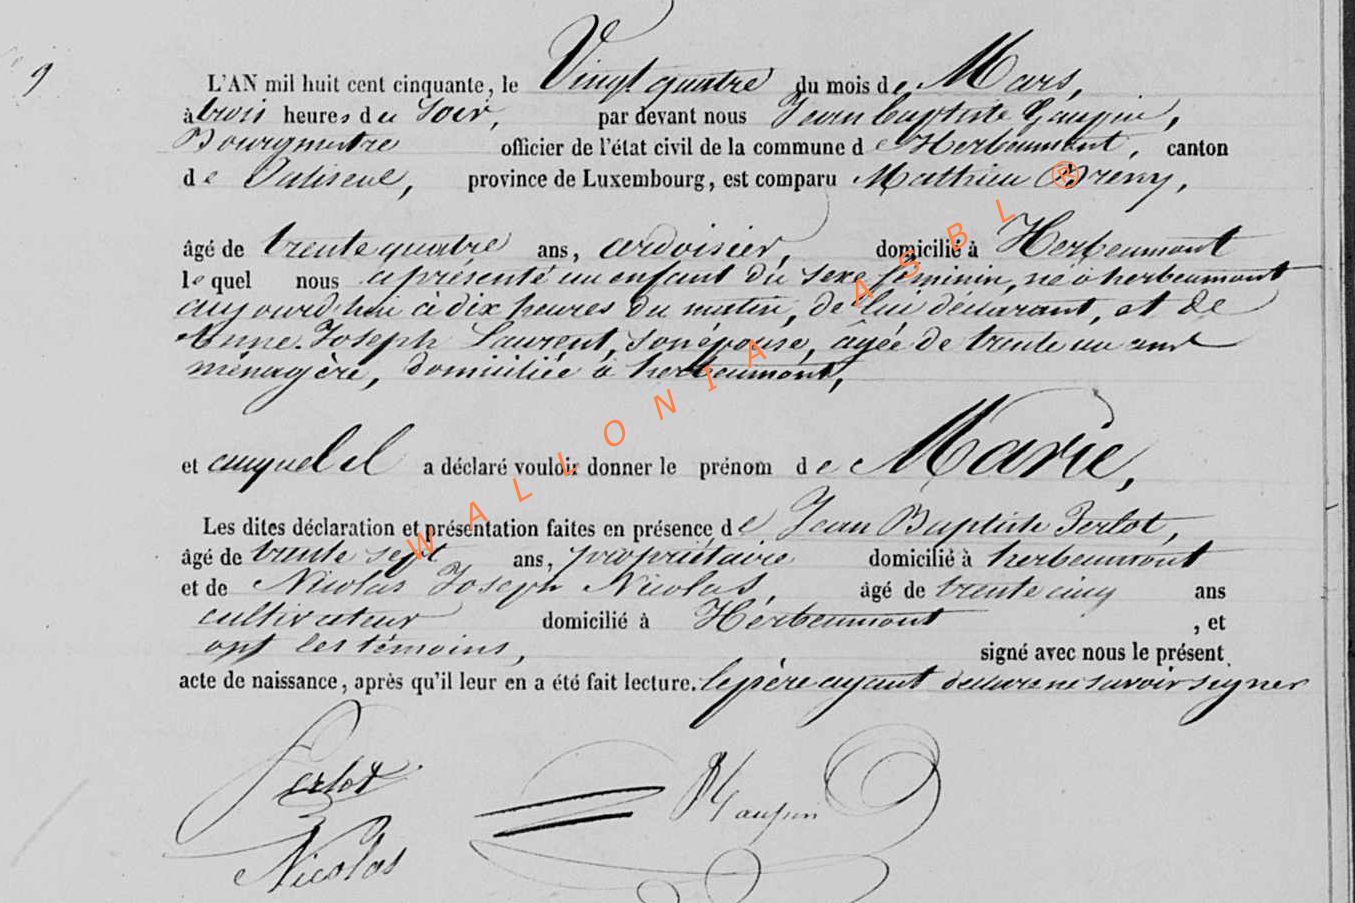 9
L'AN mil huit cent cinquante, le Vingt quatre du mois de Mars,
à trois heures du Soir, par devant nous Jean baptiste Gaupin,
Bourgmestre officier de l'état civil de la commune de Herbeumont, canton
de Paliseul, province de Luxembourg, est comparu Mathieu Breny,
âgé de trente quatre ans, ardoisier, domicilié à Herbeumont
lequel nous a présenté un enfant du sexe féminin, né à herbeumont
aujourd'hui à dix heures du matin, de lui déclarant, et de
Anne Joseph Laurent, son épouse, âgée de trente un ans
ménagère, domiciliée à herbeumont,
et auquel il a déclaré vouloir donner le prénom de Marie,
Les dites déclaration et présentation faites en présence de Jean Baptiste Perlot,
âgé de trente sept ans, propriétaire domicilié à herbeumont
et de Nicolas Joseph Nicolas, âgé de trente cinq ans
cultivateur domicilié à Herbeumont , et
ont les témoins, signé avec nous le présent
acte de naissance, après qu'il leur en a été fait lecture. le père ayant déclaré ne savoir signer
Perlot
Gaupin
Nicolas
WALLONIA ASBL ®